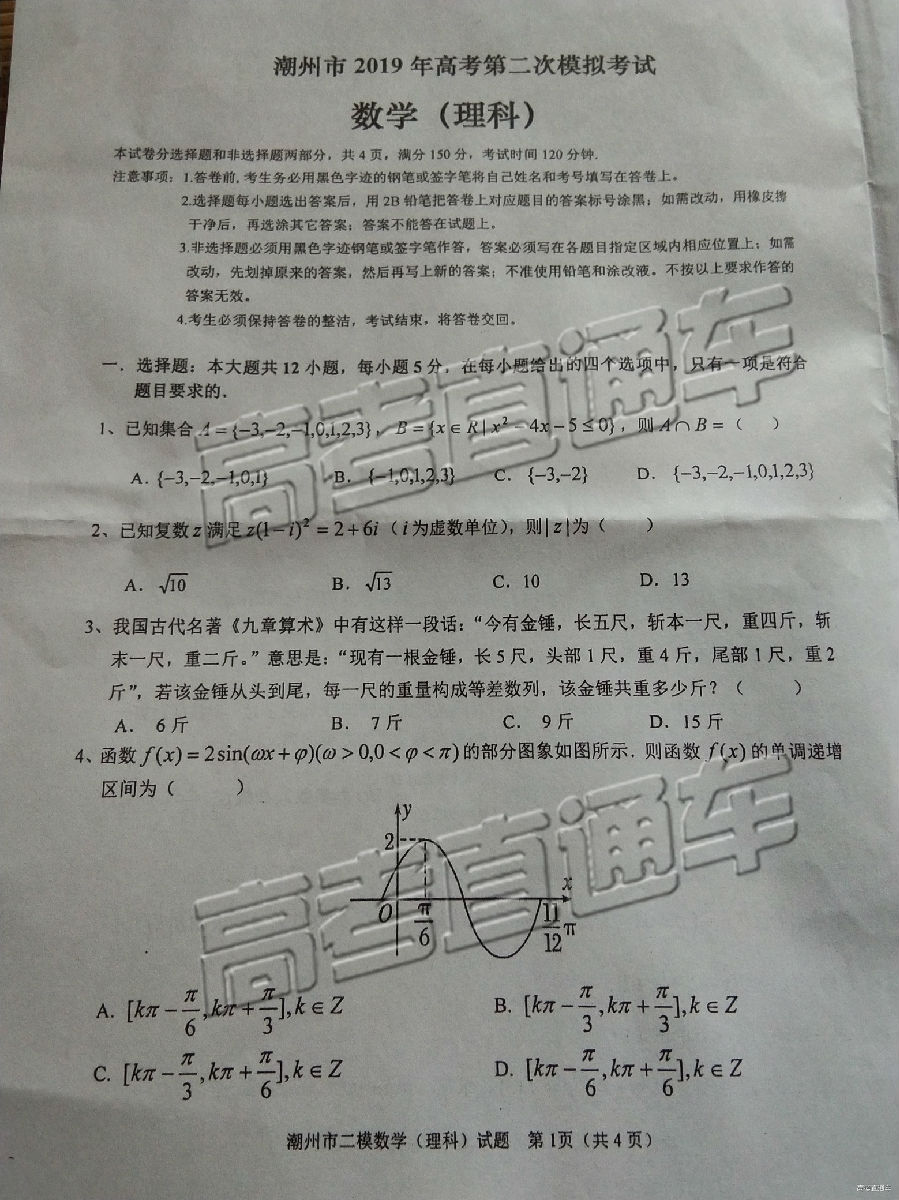 潮州市 2019 年高考第二次模拟考试
数学（理科）
本试卷分选择题和非选择题两部分，共 4 页，满分 150 分，考试时间 120 分钟.
注意事项：1.答卷前，考生务必用黑色字迹的钢笔或签字笔将自己姓名和考号填写在答卷上。
2.选择题每小题选出答案后，用 2B 铅笔把答卷上对应题目的答案标号涂黑；如需改动，用橡皮擦
干净后，再选涂其它答案；答案不能答在试题上。
3.非选择题必须用黑色字迹钢笔或签字笔作答，答案必须写在各题目指定区域内相应位置上；如需
改动，先划掉原来的答案，然后再写上新的答案；不准使用铅笔和涂改液。不按以上要求作答的
答案无效。
4.考生必须保持答卷的整洁，考试结束，将答卷交回。
一．选择题：本大题共 12 小题，每小题 5 分，在每小题给出的四个选项中，只有一项是符合
题目要求的.
1、已知集合 A={-3,-2,-1,0,1,2,3}，B={x∈R|x²-4x-5≤0}，则 A∩B=（ ）
A. {-3,-2,-1,0,1} B. {-1,0,1,2,3} C. {-3,-2} D. {-3,-2,-1,0,1,2,3}
2、已知复数 z 满足 z(1-i)²=2+6i（i 为虚数单位），则|z|为（ ）
A. √10 B. √13 C. 10 D. 13
3、我国古代名著《九章算术》中有这样一段话：“今有金锤，长五尺，斩本一尺，重四斤，斩
末一尺，重二斤。”意思是：“现有一根金锤，长 5 尺，头部 1 尺，重 4 斤，尾部 1 尺，重 2
斤”，若该金锤从头到尾，每一尺的重量构成等差数列，该金锤共重多少斤？（ ）
A. 6 斤 B. 7 斤 C. 9 斤 D. 15 斤
4、函数 f(x)=2sin(ωx+φ)(ω>0,0<φ<π)的部分图象如图所示，则函数 f(x)的单调递增
区间为（ ）
y
2
x
O π/6 11/12 π
A. [kπ-π/6,kπ+π/3],k∈Z B. [kπ-π/3,kπ+π/3],k∈Z
C. [kπ-π/3,kπ+π/6],k∈Z D. [kπ-π/6,kπ+π/6],k∈Z
潮州市二模数学（理科）试题 第 1页（共 4 页）
高考直通车
高考直通车
高考直通车